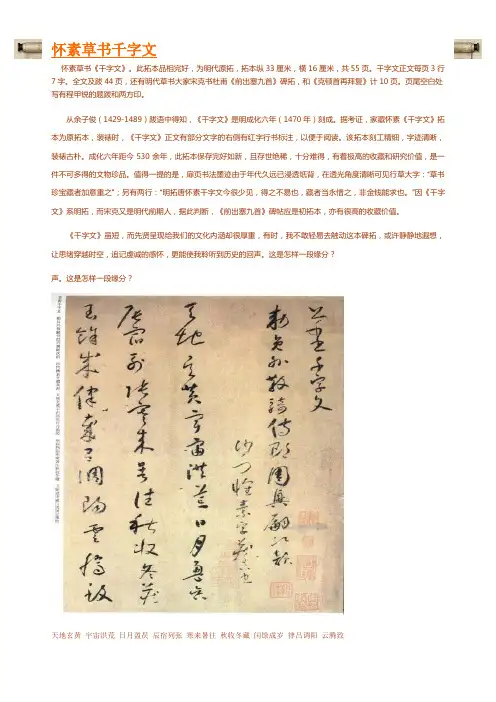 怀素草书千字文
怀素草书《千字文》。此拓本品相完好，为明代原拓，拓本纵33厘米，横16厘米，共55页。千字文正文每页3行
7字。全文及跋44页，还有明代草书大家宋克书杜甫《前出塞九首》碑拓，和《克顿首再拜复》计10页。页尾空白处
写有程甲锐的题跋和两方印。
从余子俊（1429-1489）跋语中得知，《千字文》是明成化六年（1470年）刻成。据考证，家藏怀素《千字文》拓
本为原拓本，装裱时，《千字文》正文有部分文字的右侧有红字行书标注，以便于阅读。该拓本刻工精细，字迹清晰，
装裱古朴。成化六年距今530余年，此拓本保存完好如新，且存世绝稀，十分难得，有着极高的收藏和研究价值，是一
件不可多得的文物珍品。值得一提的是，扉页书法墨迹由于年代久远已浸透纸背，在透光角度清晰可见行草大字：“草书
珍宝藏者加意重之”；另有两行：“明拓唐怀素千字文今很少见，得之不易也，藏者当永惜之，非金钱能求也。”因《千字
文》系明拓，而宋克又是明代前期人，据此判断，《前出塞九首》碑帖应是初拓本，亦有很高的收藏价值。
《千字文》虽短，而先贤呈现给我们的文化内涵却很厚重，有时，我不敢轻易去触动这本碑拓，或许静静地遐想，
让思绪穿越时空，追记虔诚的感怀，更能使我聆听到历史的回声。这是怎样一段缘分？
声。这是怎样一段缘分？
千字文
敕员外散骑侍郎周兴嗣次韵
沙门怀素字藏真书
天地玄黄宇宙洪荒日月盈昃
辰宿列张寒来暑往秋收冬藏
闰馀成岁律吕调阳云腾致
天地玄黄 宇宙洪荒 日月盈昃 辰俗列张 寒来暑往 秋收冬藏 闰馀成岁 律吕调阳 云腾致